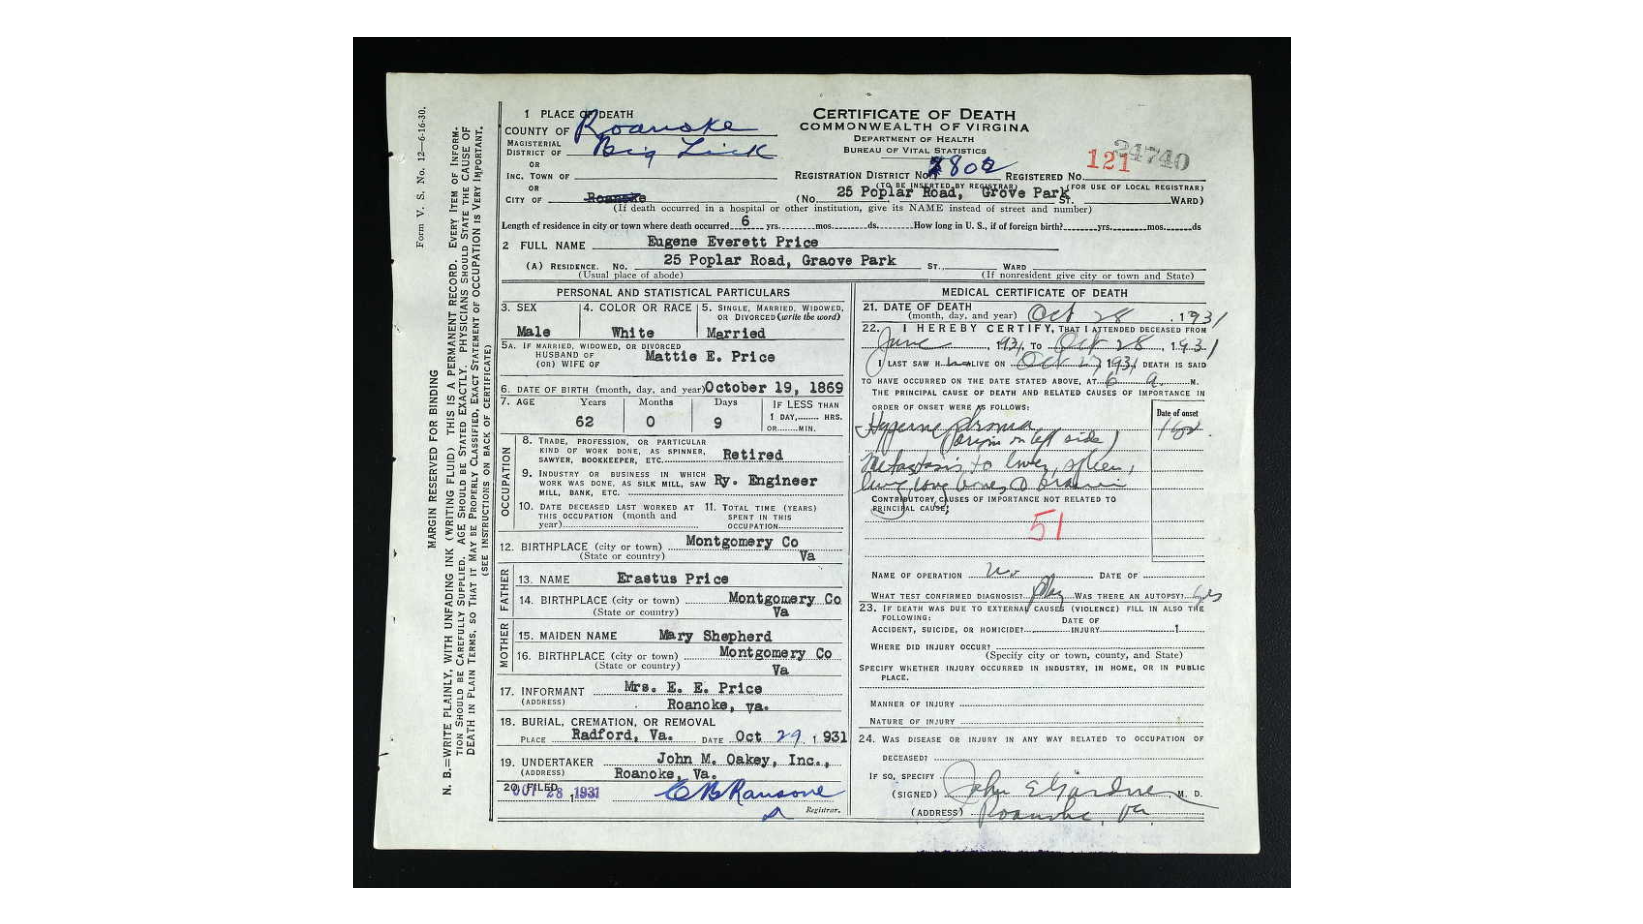 Form V. S. No. 12—6-16-30.
MARGIN RESERVED FOR BINDING
N. B.=WRITE PLAINLY, WITH UNFADING INK (WRITING FLUID) THIS IS A PERMANENT RECORD. EVERY ITEM OF INFORM-
TION SHOULD BE CAREFULLY SUPPLIED. AGE SHOULD BE STATED EXACTLY. PHYSICIANS SHOULD STATE THE CAUSE OF
DEATH IN PLAIN TERMS, SO THAT IT MAY BE PROPERLY CLASSIFIED. EXACT STATEMENT OF OCCUPATION IS VERY IMPORTANT.
(SEE INSTRUCTIONS ON BACK OF CERTIFICATE)
CERTIFICATE OF DEATH
COMMONWEALTH OF VIRGINA
DEPARTMENT OF HEALTH
BUREAU OF VITAL STATISTICS
24740
1 PLACE OF DEATH
COUNTY OF Roanoke
MAGISTERIAL DISTRICT OF Big Lick
OR
INC. TOWN OF
OR
CITY OF Roanoke
REGISTRATION DISTRICT NO. 2802 REGISTERED NO. 121
(TO BE INSERTED BY REGISTRAR) (FOR USE OF LOCAL REGISTRAR)
(No. 25 Poplar Road, Grove Park ST. WARD)
(If death occurred in a hospital or other institution, give its NAME instead of street and number)
Length of residence in city or town where death occurred 6 yrs. mos. ds. How long in U. S., if of foreign birth? yrs. mos. ds
2 FULL NAME Eugene Everett Price
(A) RESIDENCE. NO. 25 Poplar Road, Graove Park ST., WARD
(Usual place of abode) (If nonresident give city or town and State)
PERSONAL AND STATISTICAL PARTICULARS
3. SEX Male
4. COLOR OR RACE White
5. SINGLE, MARRIED, WIDOWED, OR DIVORCED (write the word) Married
5A. IF MARRIED, WIDOWED, OR DIVORCED
HUSBAND OF
(OR) WIFE OF Mattie E. Price
6. DATE OF BIRTH (month, day, and year) October 19, 1869
7. AGE Years Months Days IF LESS THAN
62 0 9 1 DAY, HRS.
OR MIN.
OCCUPATION
8. TRADE, PROFESSION, OR PARTICULAR
KIND OF WORK DONE, AS SPINNER,
SAWYER, BOOKKEEPER, ETC. Retired
9. INDUSTRY OR BUSINESS IN WHICH
WORK WAS DONE, AS SILK MILL, SAW
MILL, BANK, ETC. Ry. Engineer
10. DATE DECEASED LAST WORKED AT
THIS OCCUPATION (month and
year)
11. TOTAL TIME (YEARS)
SPENT IN THIS
OCCUPATION
12. BIRTHPLACE (city or town) Montgomery Co
(State or country) Va
FATHER
13. NAME Erastus Price
14. BIRTHPLACE (city or town) Montgomery Co
(State or country) Va
MOTHER
15. MAIDEN NAME Mary Shepherd
16. BIRTHPLACE (city or town) Montgomery Co
(State or country) Va
17. INFORMANT Mrs. E. E. Price
(ADDRESS) Roanoke, va.
18. BURIAL, CREMATION, OR REMOVAL
PLACE Radford, Va. DATE Oct 29, 1931
19. UNDERTAKER John M. Oakey, Inc.,
(ADDRESS) Roanoke, Va.
20. FILED OCT 28 1931 C B Ransone
Registrar.
MEDICAL CERTIFICATE OF DEATH
21. DATE OF DEATH
(month, day, and year) Oct 28, 1931
22. I HEREBY CERTIFY, THAT I ATTENDED DECEASED FROM
June, 1931, TO Oct 28, 1931
I LAST SAW H ALIVE ON Oct 27, 1931 DEATH IS SAID
TO HAVE OCCURRED ON THE DATE STATED ABOVE, AT 6 a. M.
THE PRINCIPAL CAUSE OF DEATH AND RELATED CAUSES OF IMPORTANCE IN
ORDER OF ONSET WERE AS FOLLOWS:
Date of onset
Hypernephroma
(origin on left side)
Metastasis to liver, spleen,
lung, long bones, & brain
CONTRIBUTORY CAUSES OF IMPORTANCE NOT RELATED TO
PRINCIPAL CAUSE:
51
NAME OF OPERATION No DATE OF
WHAT TEST CONFIRMED DIAGNOSIS? WAS THERE AN AUTOPSY? Yes
23. IF DEATH WAS DUE TO EXTERNAL CAUSES (VIOLENCE) FILL IN ALSO THE
FOLLOWING:
ACCIDENT, SUICIDE, OR HOMICIDE? DATE OF INJURY 1
WHERE DID INJURY OCCUR?
(Specify city or town, county, and State)
SPECIFY WHETHER INJURY OCCURRED IN INDUSTRY, IN HOME, OR IN PUBLIC
PLACE.
MANNER OF INJURY
NATURE OF INJURY
24. WAS DISEASE OR INJURY IN ANY WAY RELATED TO OCCUPATION OF
DECEASED?
IF SO, SPECIFY
(SIGNED) John E Gardner M. D.
(ADDRESS) Roanoke, Va